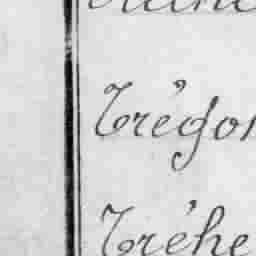 Trégon
Tréhe